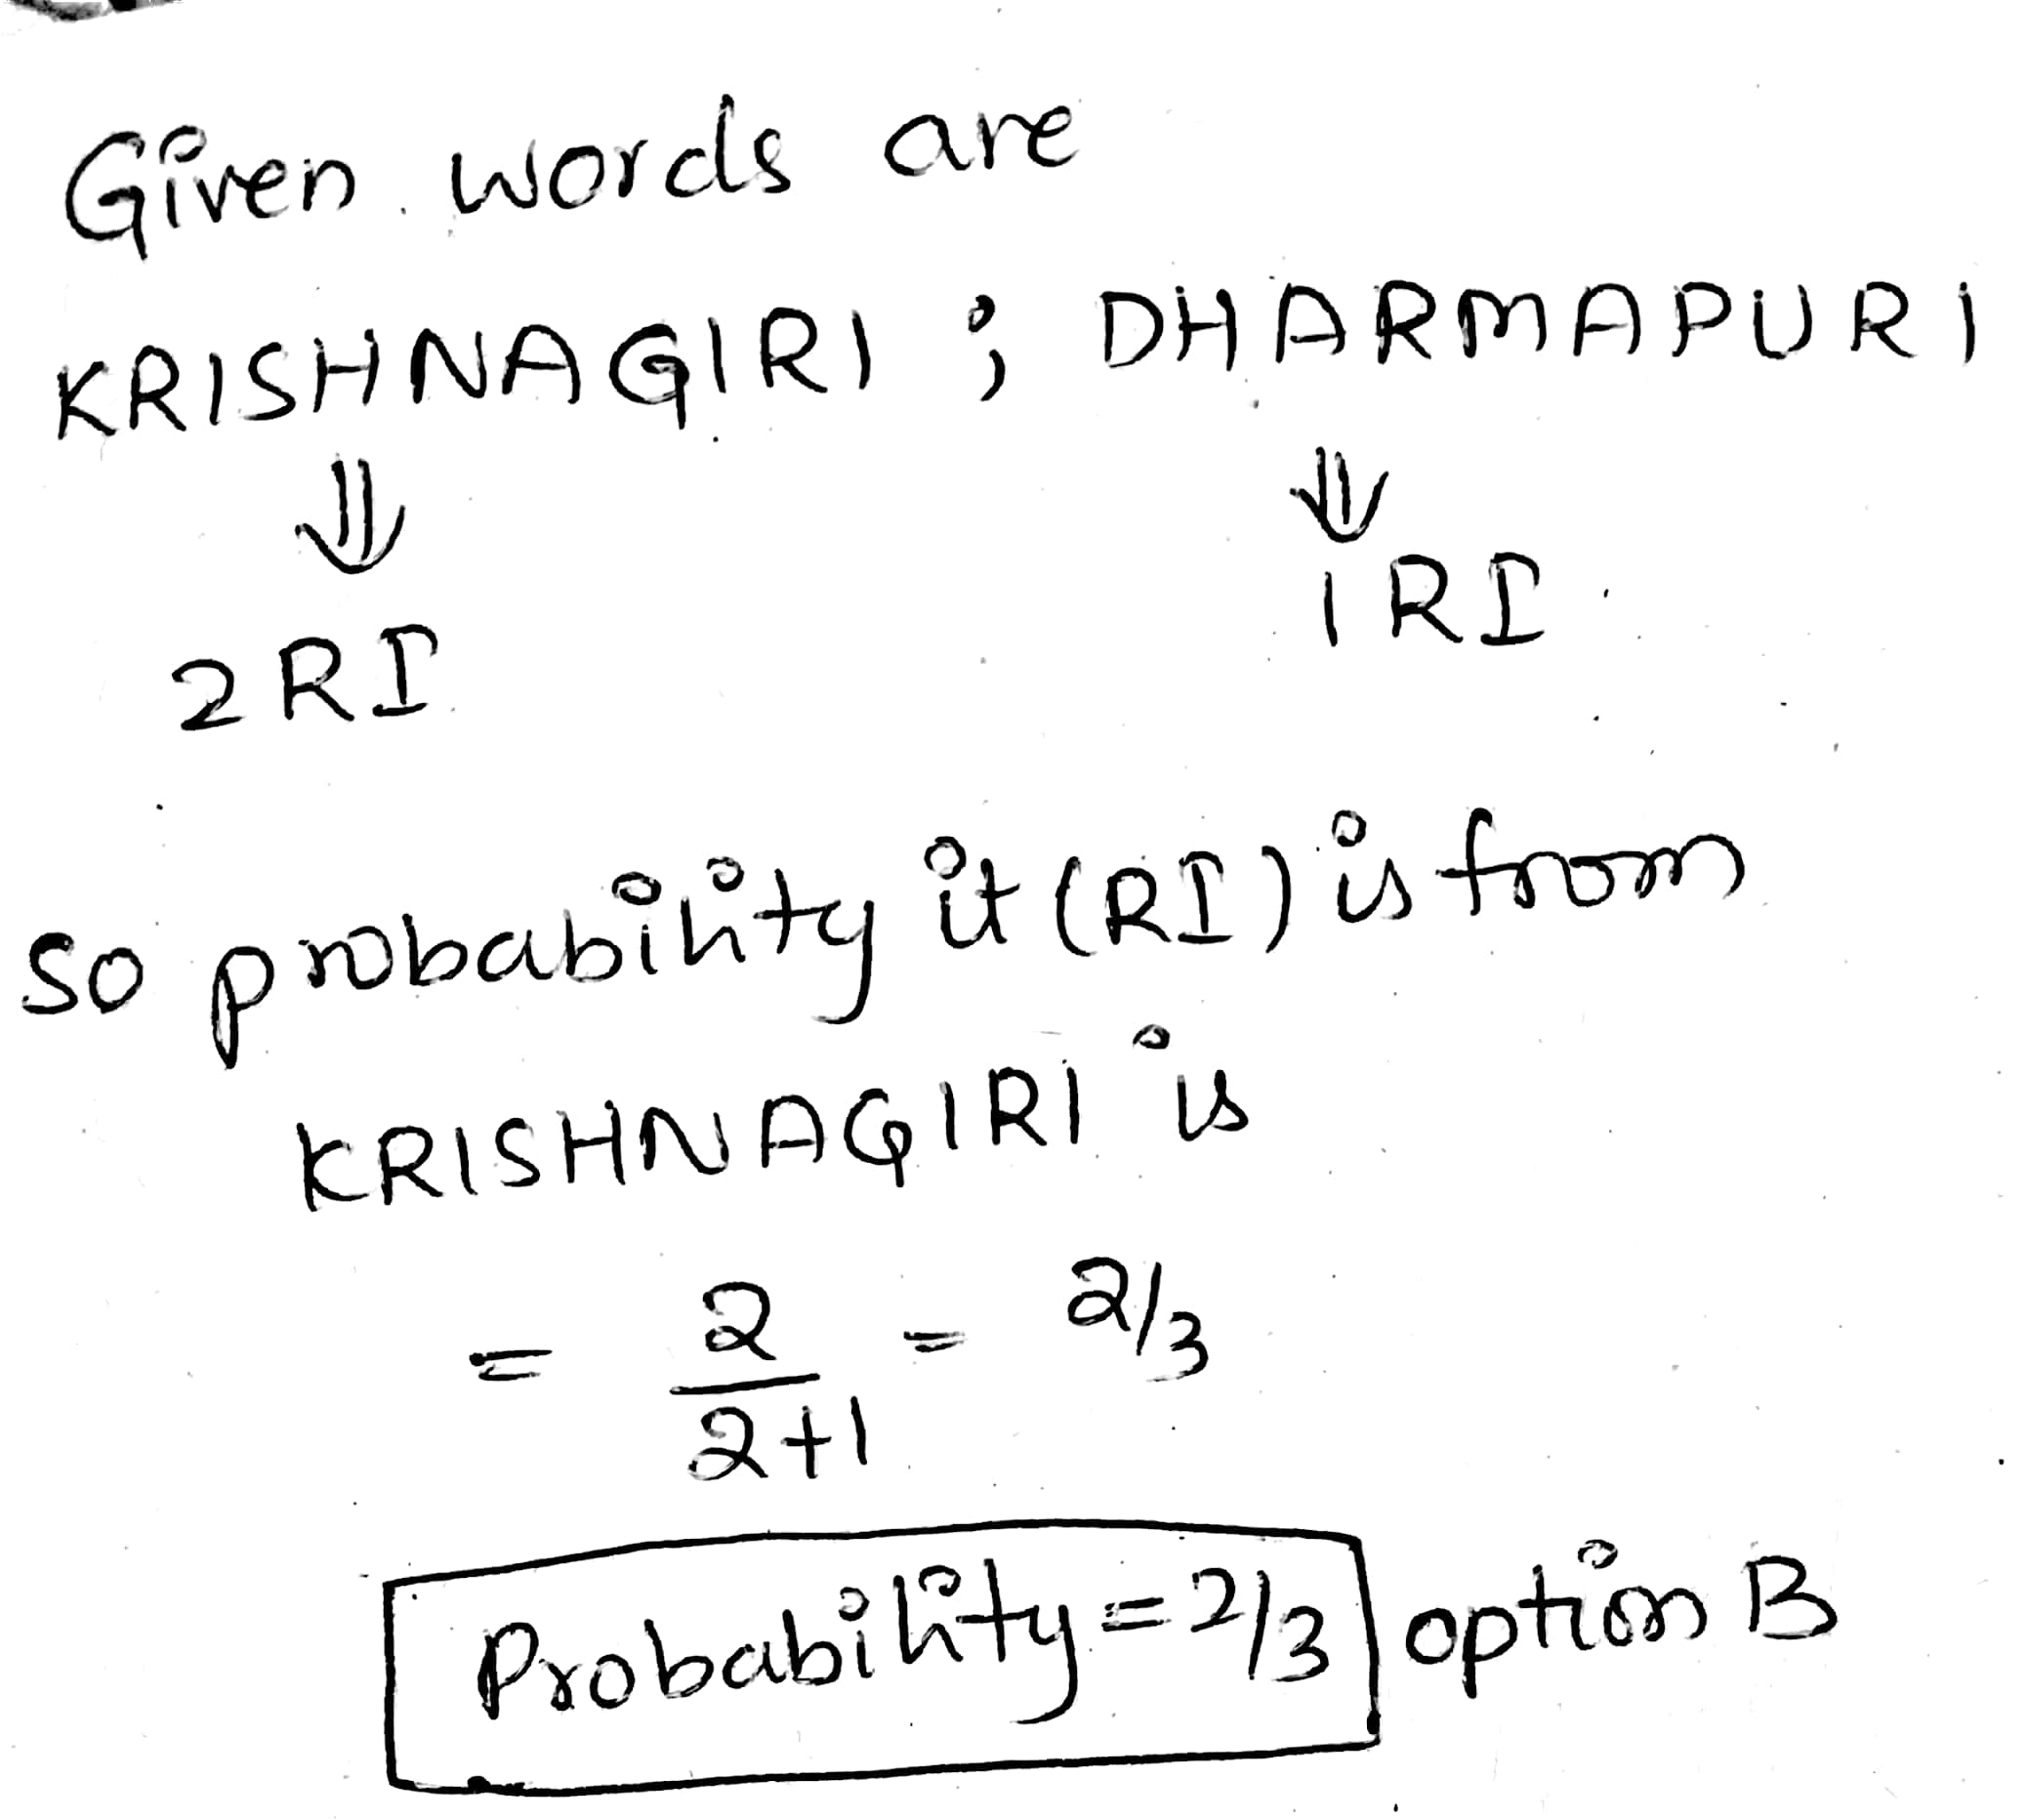 Given words are
KRISHNAGIRI ; DHARMAPURI
⇓ ⇓
2 RI 1 RI
so probability it (RI) is from
KRISHNAGIRI is
= 2/2+1 = 2/3
Probability = 2/3 option B